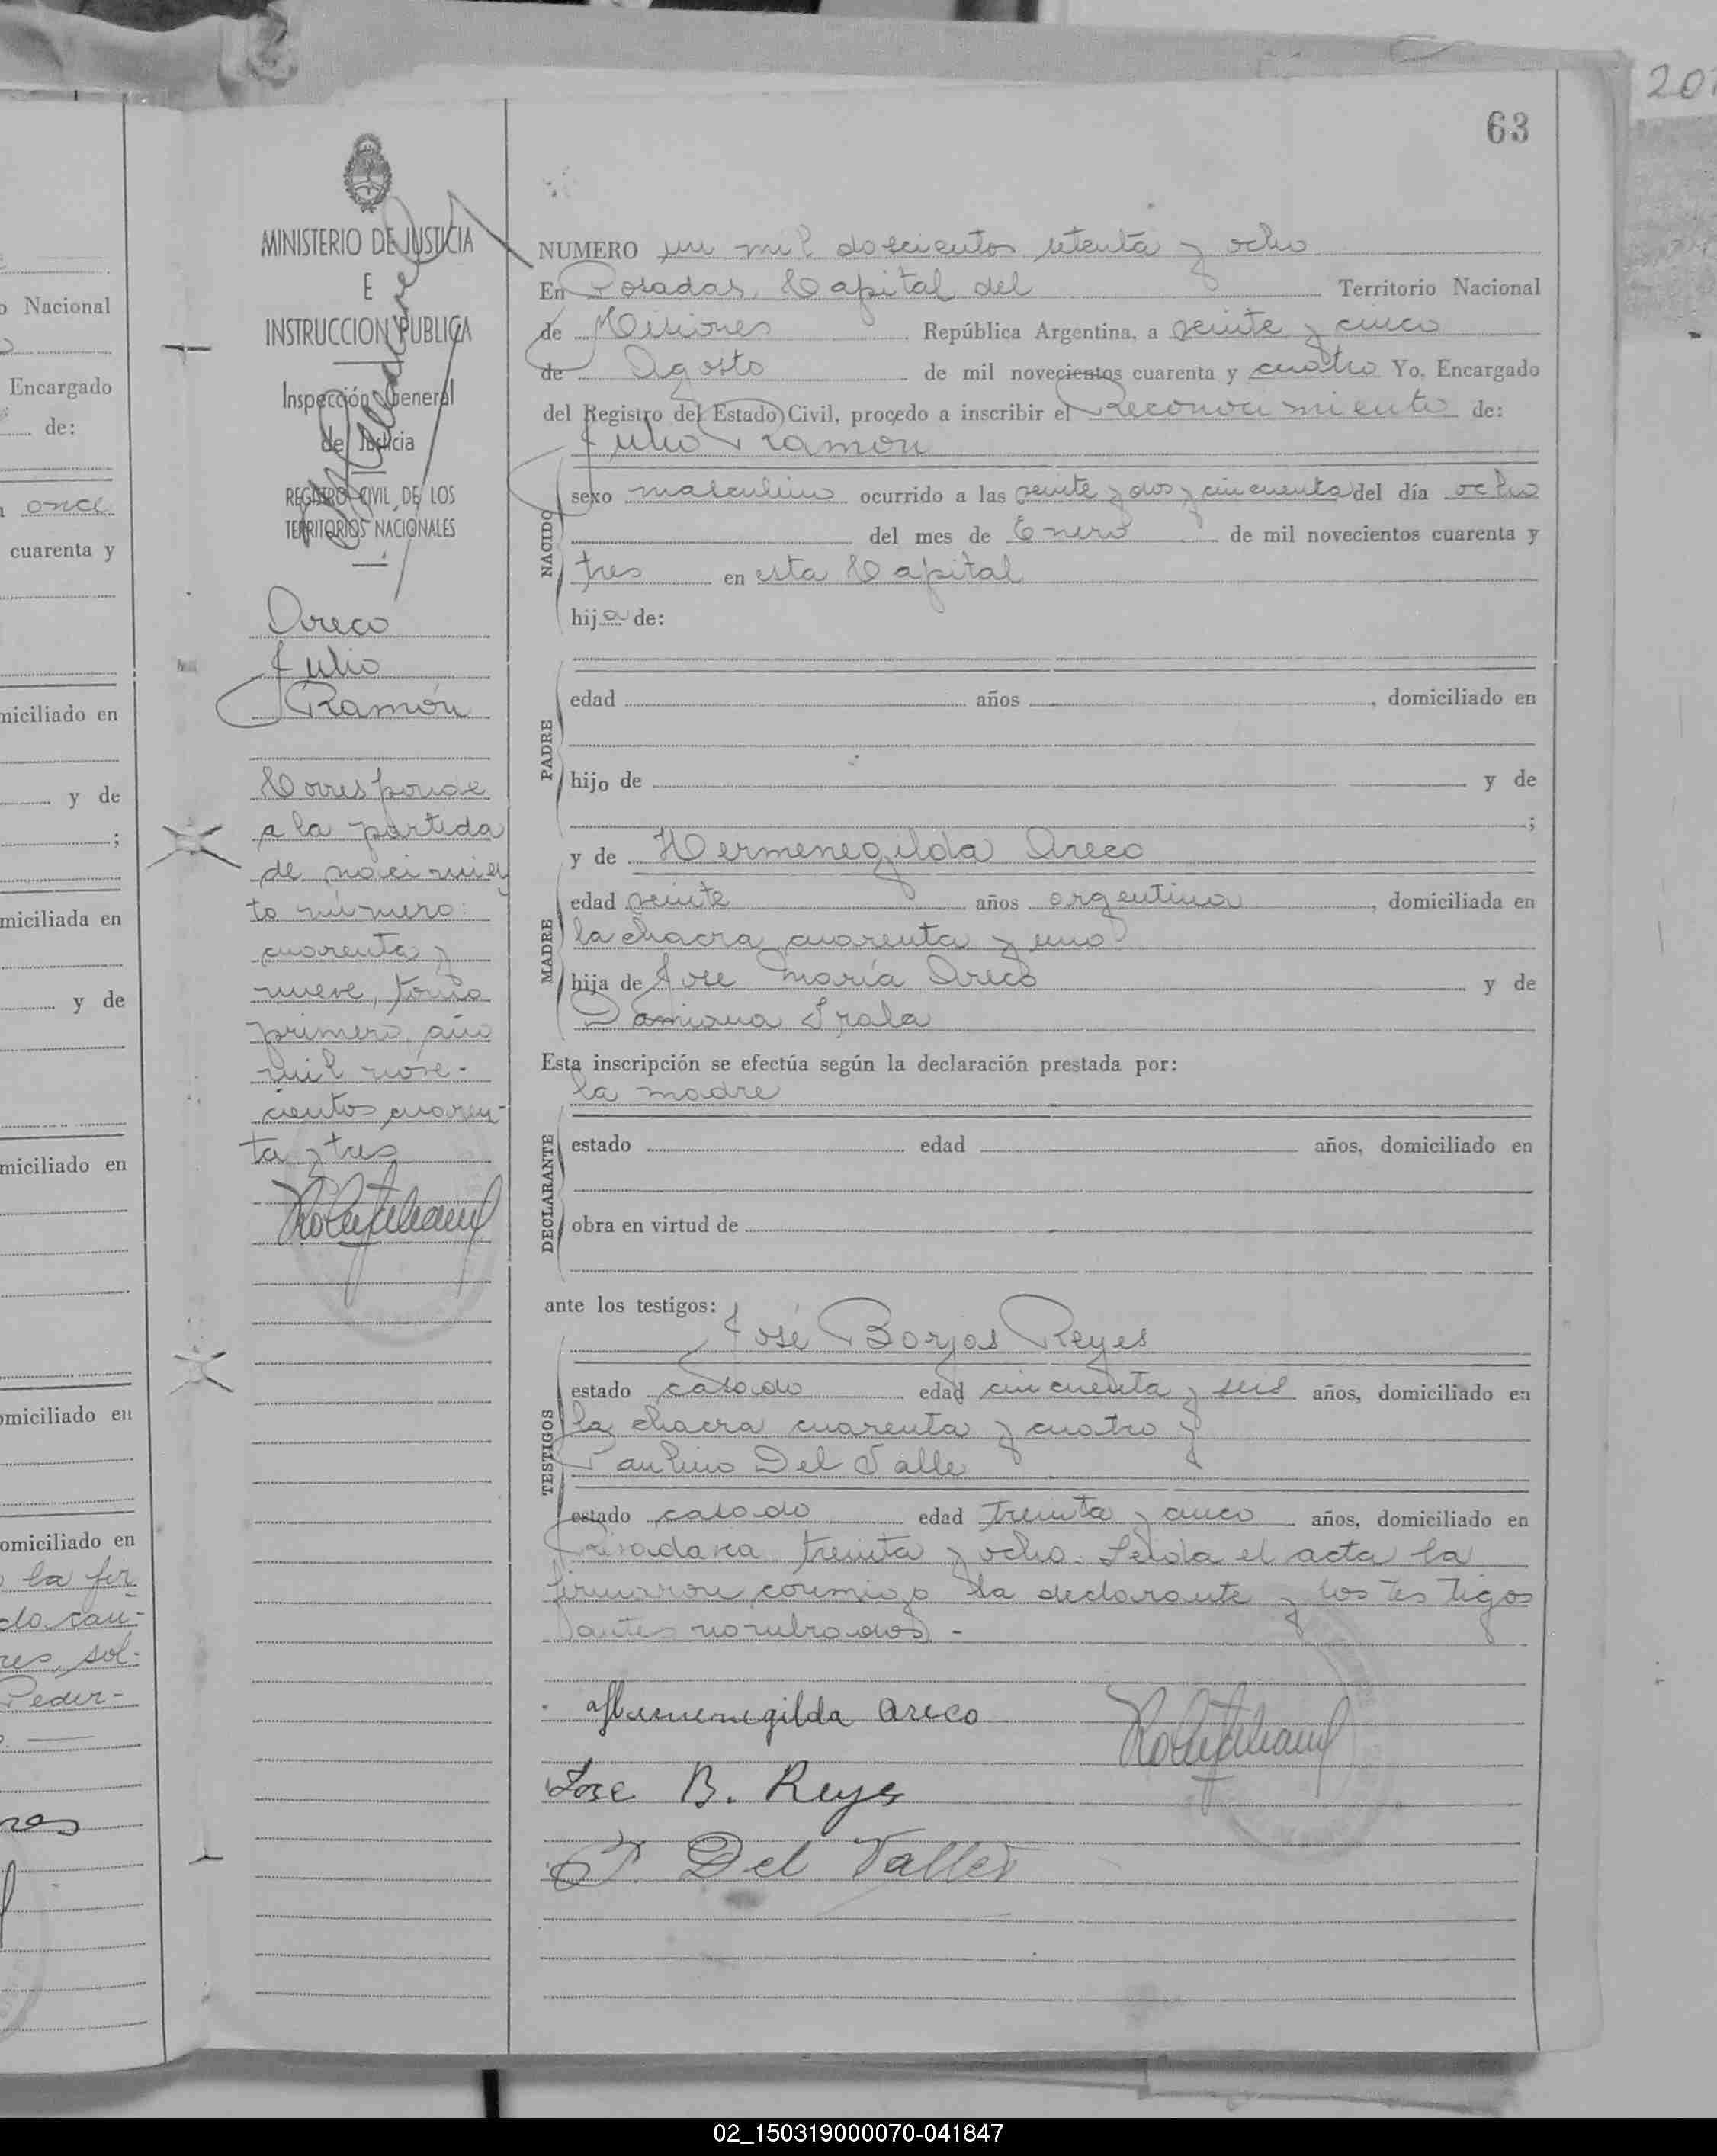 207
63
MINISTERIO DE JUSTICIA
E
INSTRUCCION PUBLICA
Inspección General
de Justicia
REGISTRO CIVIL DE LOS
TERRITORIOS NACIONALES
Areco
Julio
Ramón
Corresponde
a la partida
de nacimien
to número:
cuarenta y
nueve, tomo
primero, año
mil nove-
cientos cuaren-
ta y tres
NUMERO un mil doscientos setenta y ocho
En Posadas, Capital del Territorio Nacional
de Misiones República Argentina, a veinte y cinco
de Agosto de mil novecientos cuarenta y cuatro Yo, Encargado
del Registro del Estado Civil, procedo a inscribir el Reconocimiento de:
Julio Ramon
NACIDO
sexo masculino ocurrido a las veinte y dos y cincuenta del día ocho
del mes de Enero de mil novecientos cuarenta y
tres en esta Capital
hijo de:
PADRE
edad años , domiciliado en
hijo de y de
;
MADRE
y de Hermenegilda Areco
edad veinte años argentina , domiciliada en
la chacra cuarenta y uno
hija de Jose María Areco y de
Damiana Irala
Esta inscripción se efectúa según la declaración prestada por:
la madre
DECLARANTE
estado edad años, domiciliado en
obra en virtud de
ante los testigos:
José Borjas Reyes
TESTIGOS
estado casado edad cincuenta y seis años, domiciliado en
la chacra cuarenta y cuatro y
Paulino Del Valle
estado casado edad treinta y cinco años, domiciliado en
Rivadavia treinta y ocho. Leída el acta la
firmaron conmigo la declarante y los testigos
antes nombrados -
Hermenegilda Areco
Jose B. Reyes
P. Del Valle
o Nacional
Encargado
de:
once
cuarenta y
miciliado en
y de
;
miciliada en
y de
miciliado en
omiciliado en
omiciliado en
la fir
do
res, sol-
Peder-
02_150319000070-041847